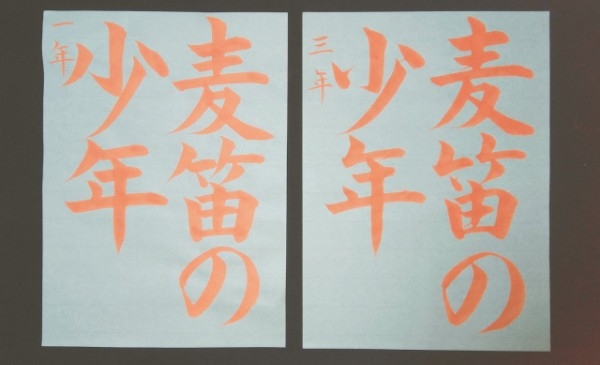 麦笛の
少年
三年
麦笛の
少年
一年